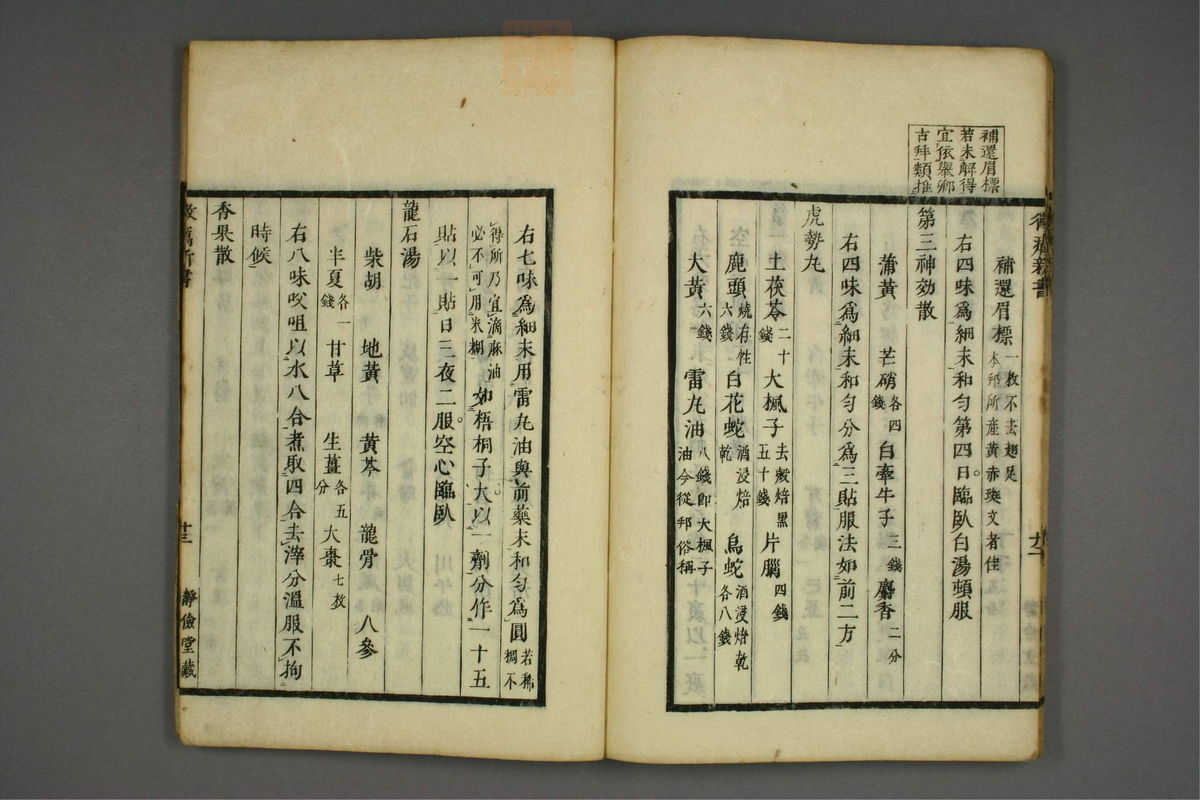 補還眉標
若未解得
宜依擧鄕
古拜類推
黴瘡新書
補還眉標 一枚不去翅足 本邦所產黃赤斑文者佳
右四味為細末和勻第四日臨臥白湯頓服
第三神効散
蒲黃 芒硝 各四錢 白牽牛子 三錢 麝香 二分
右四味為細末和勻分為三貼服法如前二方
虎勢丸
土茯苓 二十錢 大楓子 去殼焙黑五十錢 片腦 四錢
鹿頭 燒存性六錢 白花蛇 酒浸焙乾 烏蛇 酒浸焙乾各八錢
大黃 六錢 雷丸油 八錢即大楓子油今從邦俗稱
右七味為細末用雷丸油與前藥末和勻為圓 若稀稠不
得所乃宜滴麻油必不可用米糊也 如梧桐子大以一劑分作一十五
貼以一貼日三夜二服空心臨臥
龍石湯
柴胡 地黃 黃芩 龍骨 人參
半夏 各一錢 甘草 生薑 各五分 大棗 七枚
右八味㕮咀以水八合煮取四合去滓分溫服不拘
時候
香果散
靜儉堂藏